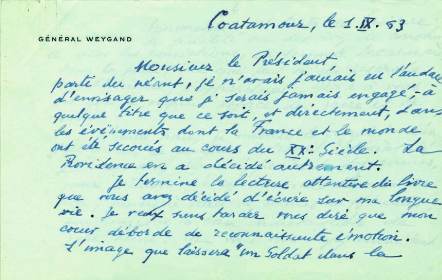 Coatamour, le 1. IX. 63
GÉNÉRAL WEYGAND
Monsieur le Président,
parti du néant, je n'avais jamais eu l'audace
d'envisager que je serais jamais engagé, à
quelque titre que ce soit, et directement, dans
les évènements dont la France et le monde
ont été secoués au cours du XX: Siècle. La
Providence en a décidé autrement.
Je termine la lecture attentive du livre
que vous avez décidé d'écrire sur ma longue
vie. Je veux sans tarder vous dire que mon
coeur déborde de reconnaissante émotion.
L'image que laissera "un Soldat dans la